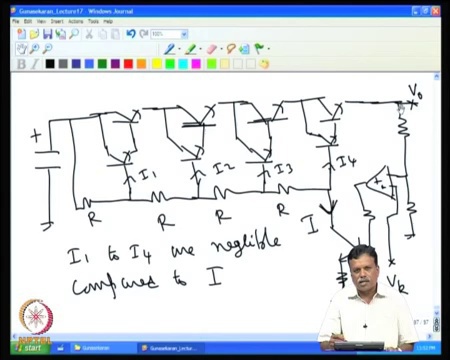 Gunasekaran_Lecture17 - Windows Journal
File Edit View Insert Actions Tools Help
100%
B I
V0
+
I1 I2 I3 I4
R R R R
I
I1 to I4 are neglible
compared to I
VR
start
Gunasekaran
Gunasekaran_Lectur...